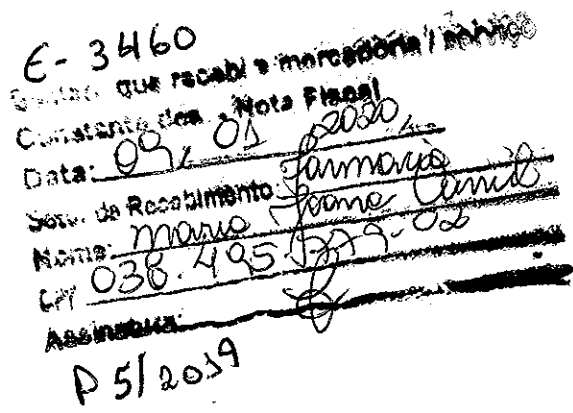 E- 3460
que recebi a mercadoria / serviço
Constante desta Nota Fiscal
Data: 09, 01, 2020
Setor de Recebimento: Farmacia
Nome: Maria Joana Camil
CPF 038.495.779-02
Assinatura:
P 5/2019